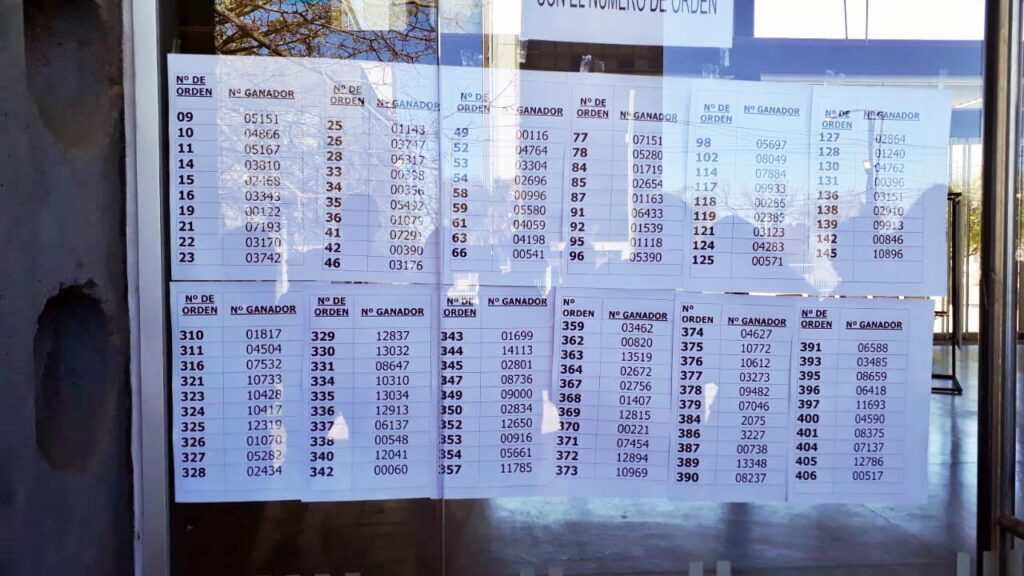 CON EL NÚMERO DE ORDEN
Nº DE ORDEN Nº GANADOR
09 05151
10 04866
11 05167
14 03810
15 02468
16 03343
19 00122
21 07193
22 03170
23 03742
Nº DE ORDEN Nº GANADOR
25 01143
26 03747
28 06317
33 00398
34 00356
35 05492
36 01079
41 07291
42 00390
46 03176
Nº DE ORDEN Nº GANADOR
49 00116
52 04764
53 03304
54 02696
58 00996
59 05580
61 04059
63 04198
66 00541
Nº DE ORDEN Nº GANADOR
77 07151
78 05280
84 01719
85 02654
87 01163
91 06433
92 01539
95 01118
96 05390
Nº DE ORDEN Nº GANADOR
98 05697
102 08049
114 07884
117 09933
118 00286
119 02385
121 03123
124 04283
125 00571
Nº DE ORDEN Nº GANADOR
127 02864
128 01240
130 04762
131 00396
136 03151
138 02910
139 09913
142 00846
145 10896
Nº DE ORDEN Nº GANADOR
310 01817
311 04504
316 07532
321 10733
323 10428
324 10417
325 12319
326 01070
327 05282
328 02434
Nº DE ORDEN Nº GANADOR
329 12837
330 13032
331 08647
334 10310
335 13034
336 12913
337 06137
338 00548
340 12041
342 00060
Nº DE ORDEN Nº GANADOR
343 01699
344 14113
345 02801
347 08736
349 09000
350 02834
352 12650
353 00916
354 05661
357 11785
Nº ORDEN Nº GANADOR
359 03462
362 00820
363 13519
364 02672
367 02756
368 01407
369 12815
370 00221
371 07454
372 12894
373 10969
Nº ORDEN Nº GANADOR
374 04627
375 10772
376 10612
377 03273
378 09482
379 07046
384 2075
386 3227
387 00738
389 13348
390 08237
Nº DE ORDEN Nº GANADOR
391 06588
393 03485
395 08659
396 06418
397 11693
400 04590
401 08375
404 07137
405 12786
406 00517